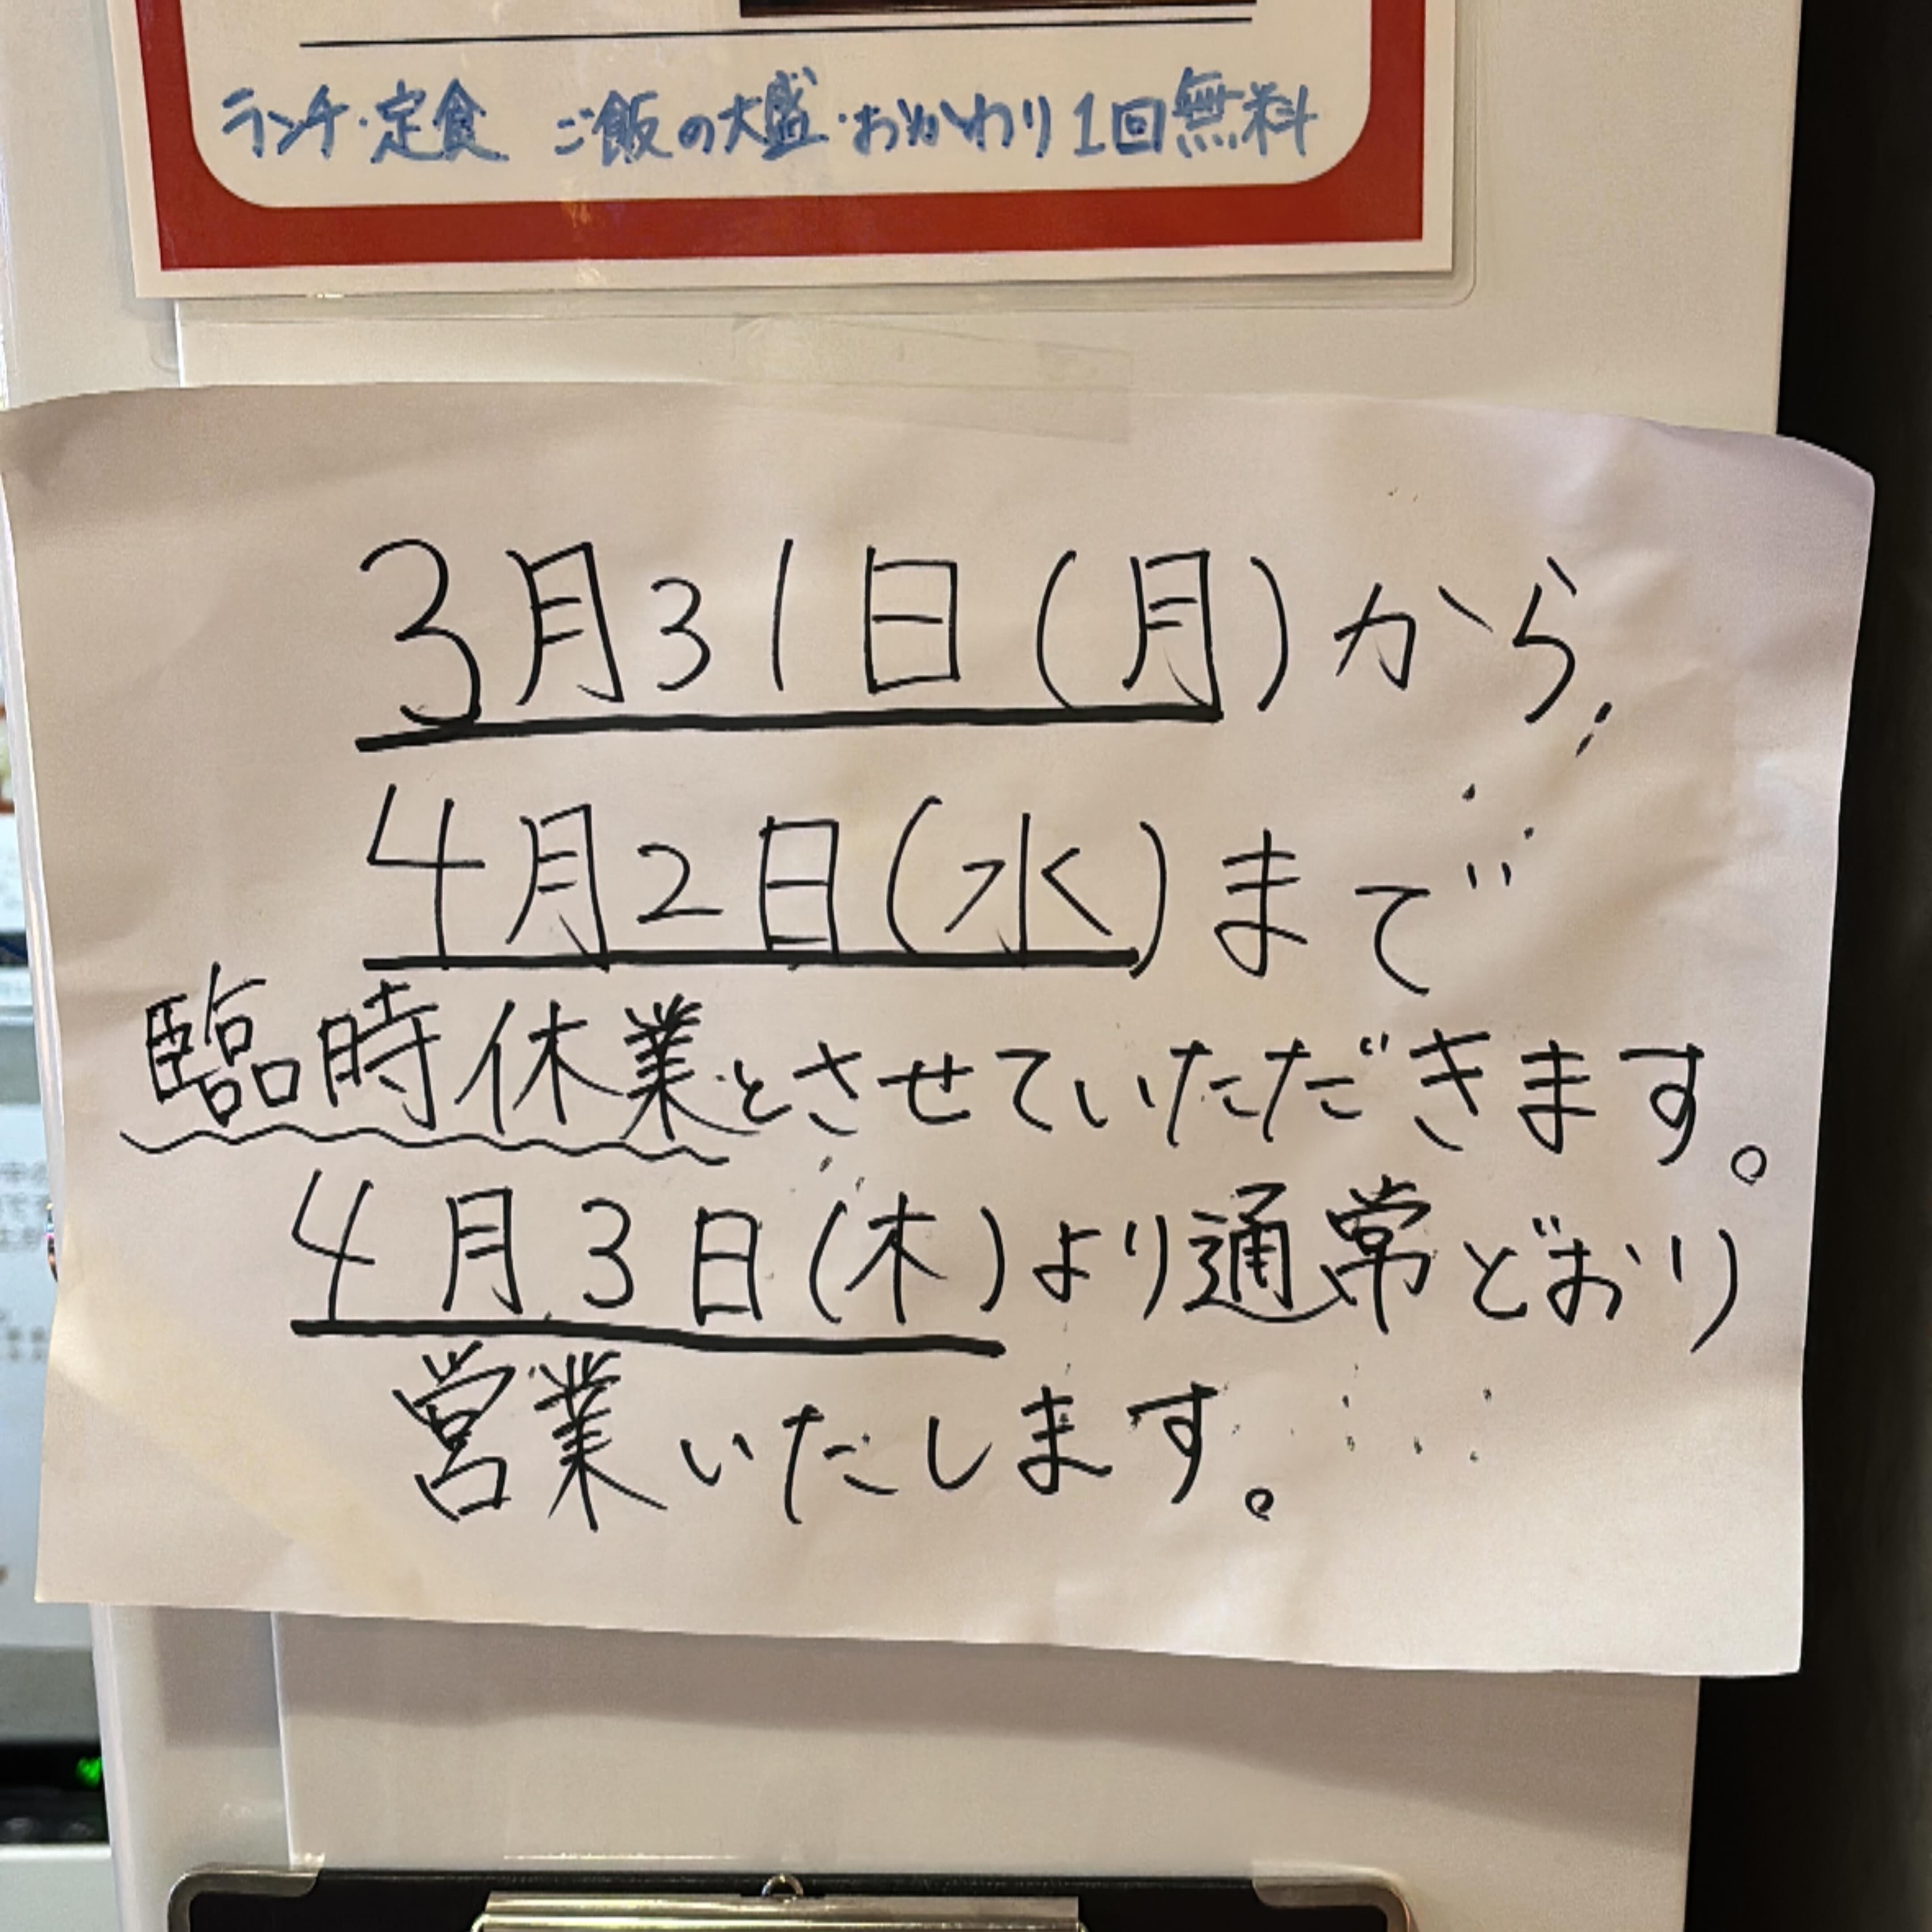 ランチ・定食 ご飯の大盛・おかわり1回無料
3月31日(月)から、
4月2日(水)まで
臨時休業とさせていただきます。
4月3日(木)より通常どおり
営業いたします。